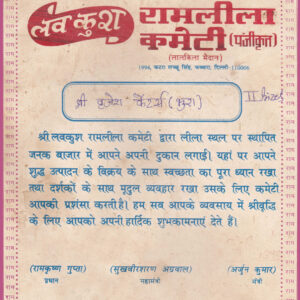 लव कुश
रामलीला
कमेटी (पंजीकृत)
(लालकिला मैदान)
1994, कटरा लच्छू सिंह, फव्वारा, दिल्ली-110006
श्री ब्रजेश कैटर्स (बुरा)
II Prize
श्री लवकुश रामलीला कमेटी द्वारा लीला स्थल पर स्थापित
जनक बाजार में आपने अपनी दुकान लगाई। यहां पर आपने
शुद्ध उत्पादन के विक्रय के साथ स्वच्छता का पूरा ध्यान रखा
तथा दर्शकों के साथ मृदुल व्यवहार रखा उसके लिए कमेटी
आपकी प्रशंसा करती है। हम सब आपके व्यवसाय में श्रीवृद्धि
के लिए आपको अपनी हार्दिक शुभकामनाएं देते हैं।
(रामकृष्ण गुप्ता) (सुखबीरशरण अग्रवाल) (अर्जुन कुमार)
प्रधान महामंत्री मंत्री